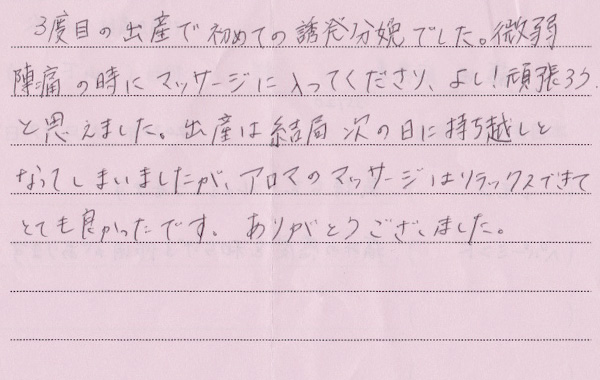 3度目の出産で初めての誘発分娩でした。微弱
陣痛の時にマッサージに入ってくださり、よし!頑張ろう
と思えました。出産は結局次の日に持ち越しと
なってしまいましたが、アロマのマッサージはリラックスできて
とても良かったです。ありがとうございました。